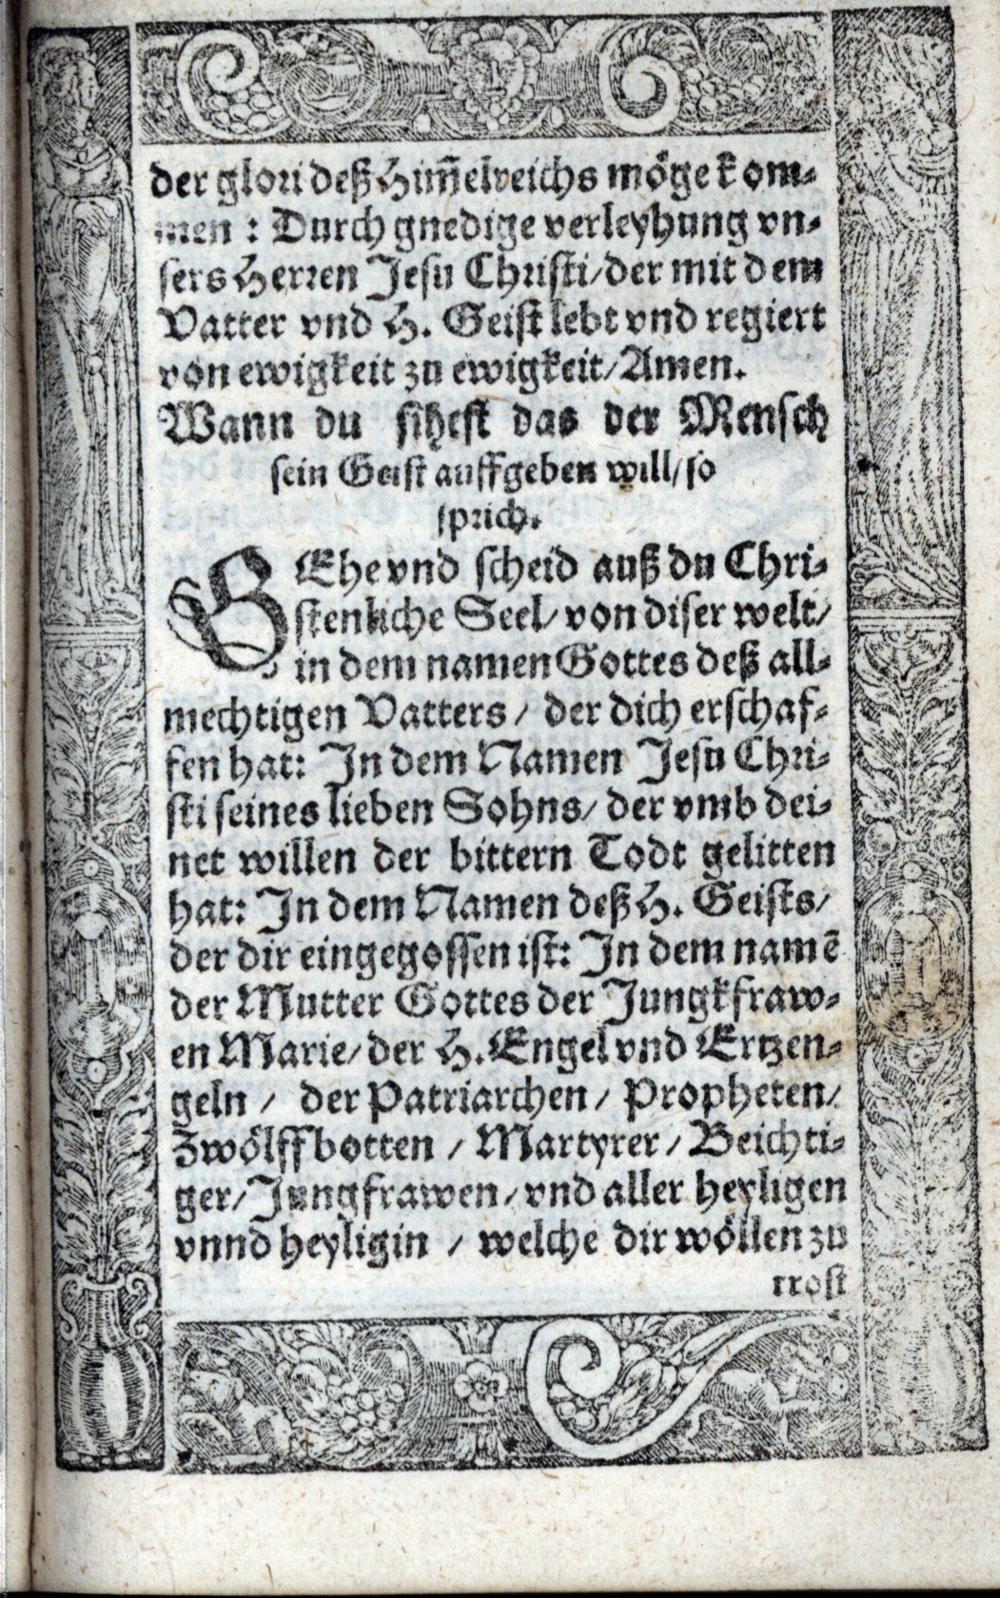 der glori deß Him̄elreichs möge kom⸗
men : Durch gnedige verleyhung vn⸗
sers Herren Jesu Christi/ der mit dem
Vatter vnd H. Geist lebt vnd regiert
von ewigkeit zu ewigkeit/ Amen.
Wann du sihest das der Mensch
sein Geist auffgeben will/ so
sprich.
GEhe vnd scheid auß du Chri⸗
stenliche Seel/ von diser welt/
in dem namen Gottes deß all⸗
mechtigen Vatters / der dich erschaf⸗
fen hat: In dem Namen Jesu Chri⸗
sti seines lieben Sohns/ der vmb dei⸗
net willen der bittern Todt gelitten
hat: In dem Namen deß H. Geists/
der dir eingegossen ist: In dem namē
der Mutter Gottes der Jungkfraw⸗
en Marie/ der H. Engel vnd Ertzen⸗
geln / der Patriarchen / Propheten/
Zwölffbotten / Martyrer / Beichti⸗
ger/ Jungfrawen/ vnd aller heyligen
vnnd heyligin / welche dir wöllen zu
trost